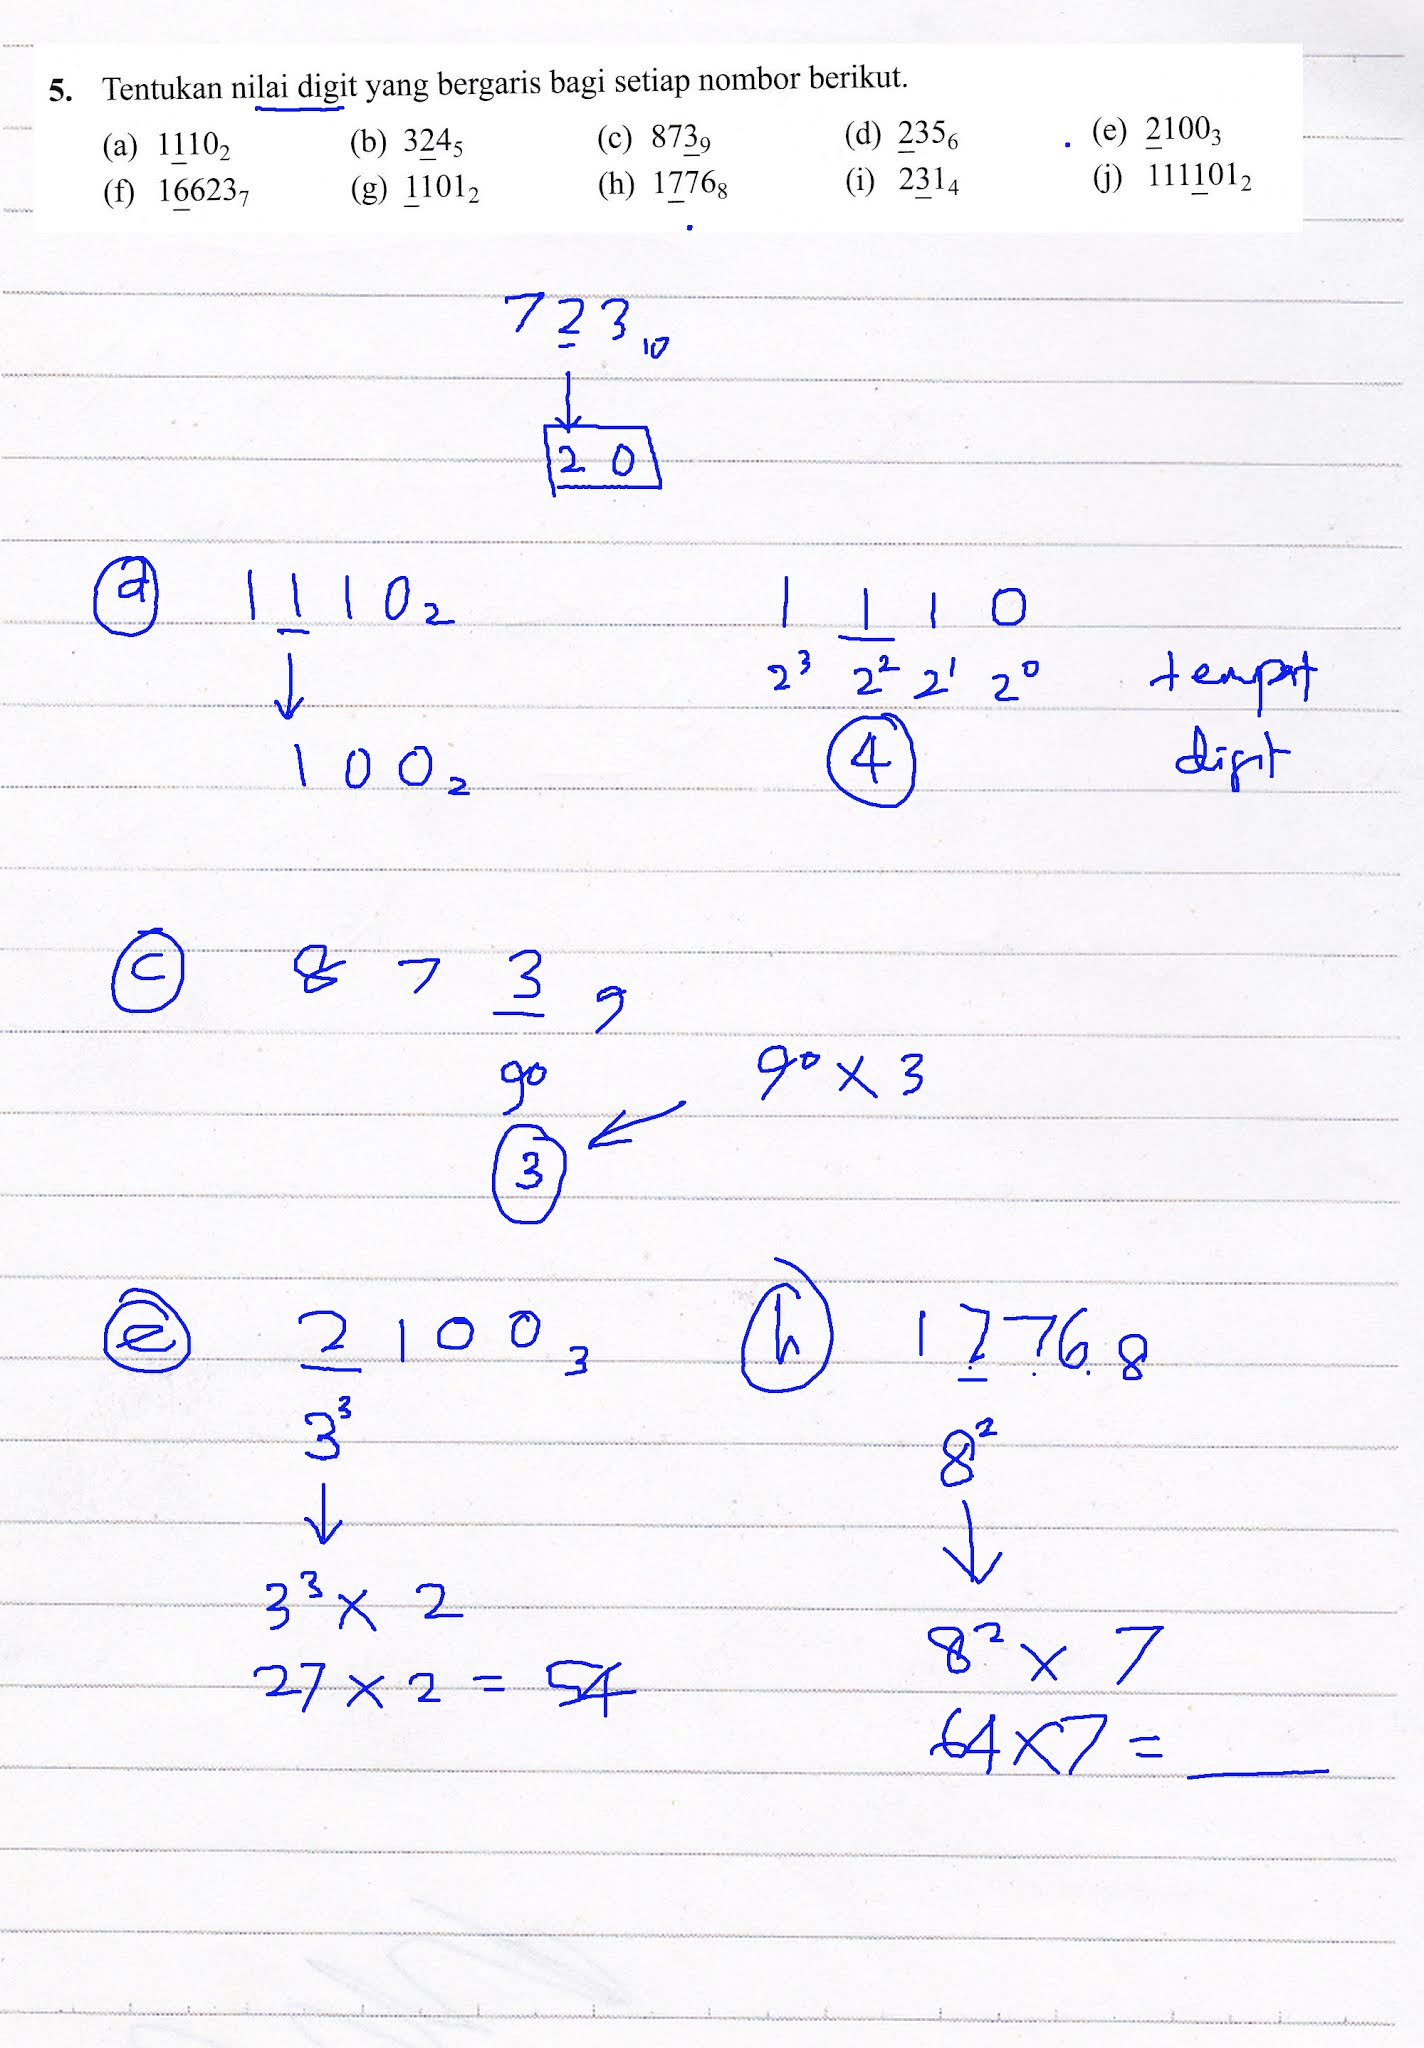 5. Tentukan nilai digit yang bergaris bagi setiap nombor berikut.
(a) 1110₂ (b) 324₅ (c) 873₉ (d) 235₆ (e) 2100₃
(f) 16623₇ (g) 1101₂ (h) 1776₈ (i) 231₄ (j) 111101₂
723₁₀
20
a 1110₂ 1 1 1 0
2³ 2² 2¹ 2⁰ tempat
100₂ 4 digit
c 873₉
9⁰ 9⁰ × 3
3
e 2100₃ h 1776₈
3³ 8²
3³ × 2 8² × 7
27 × 2 = 54 64 × 7 = ____